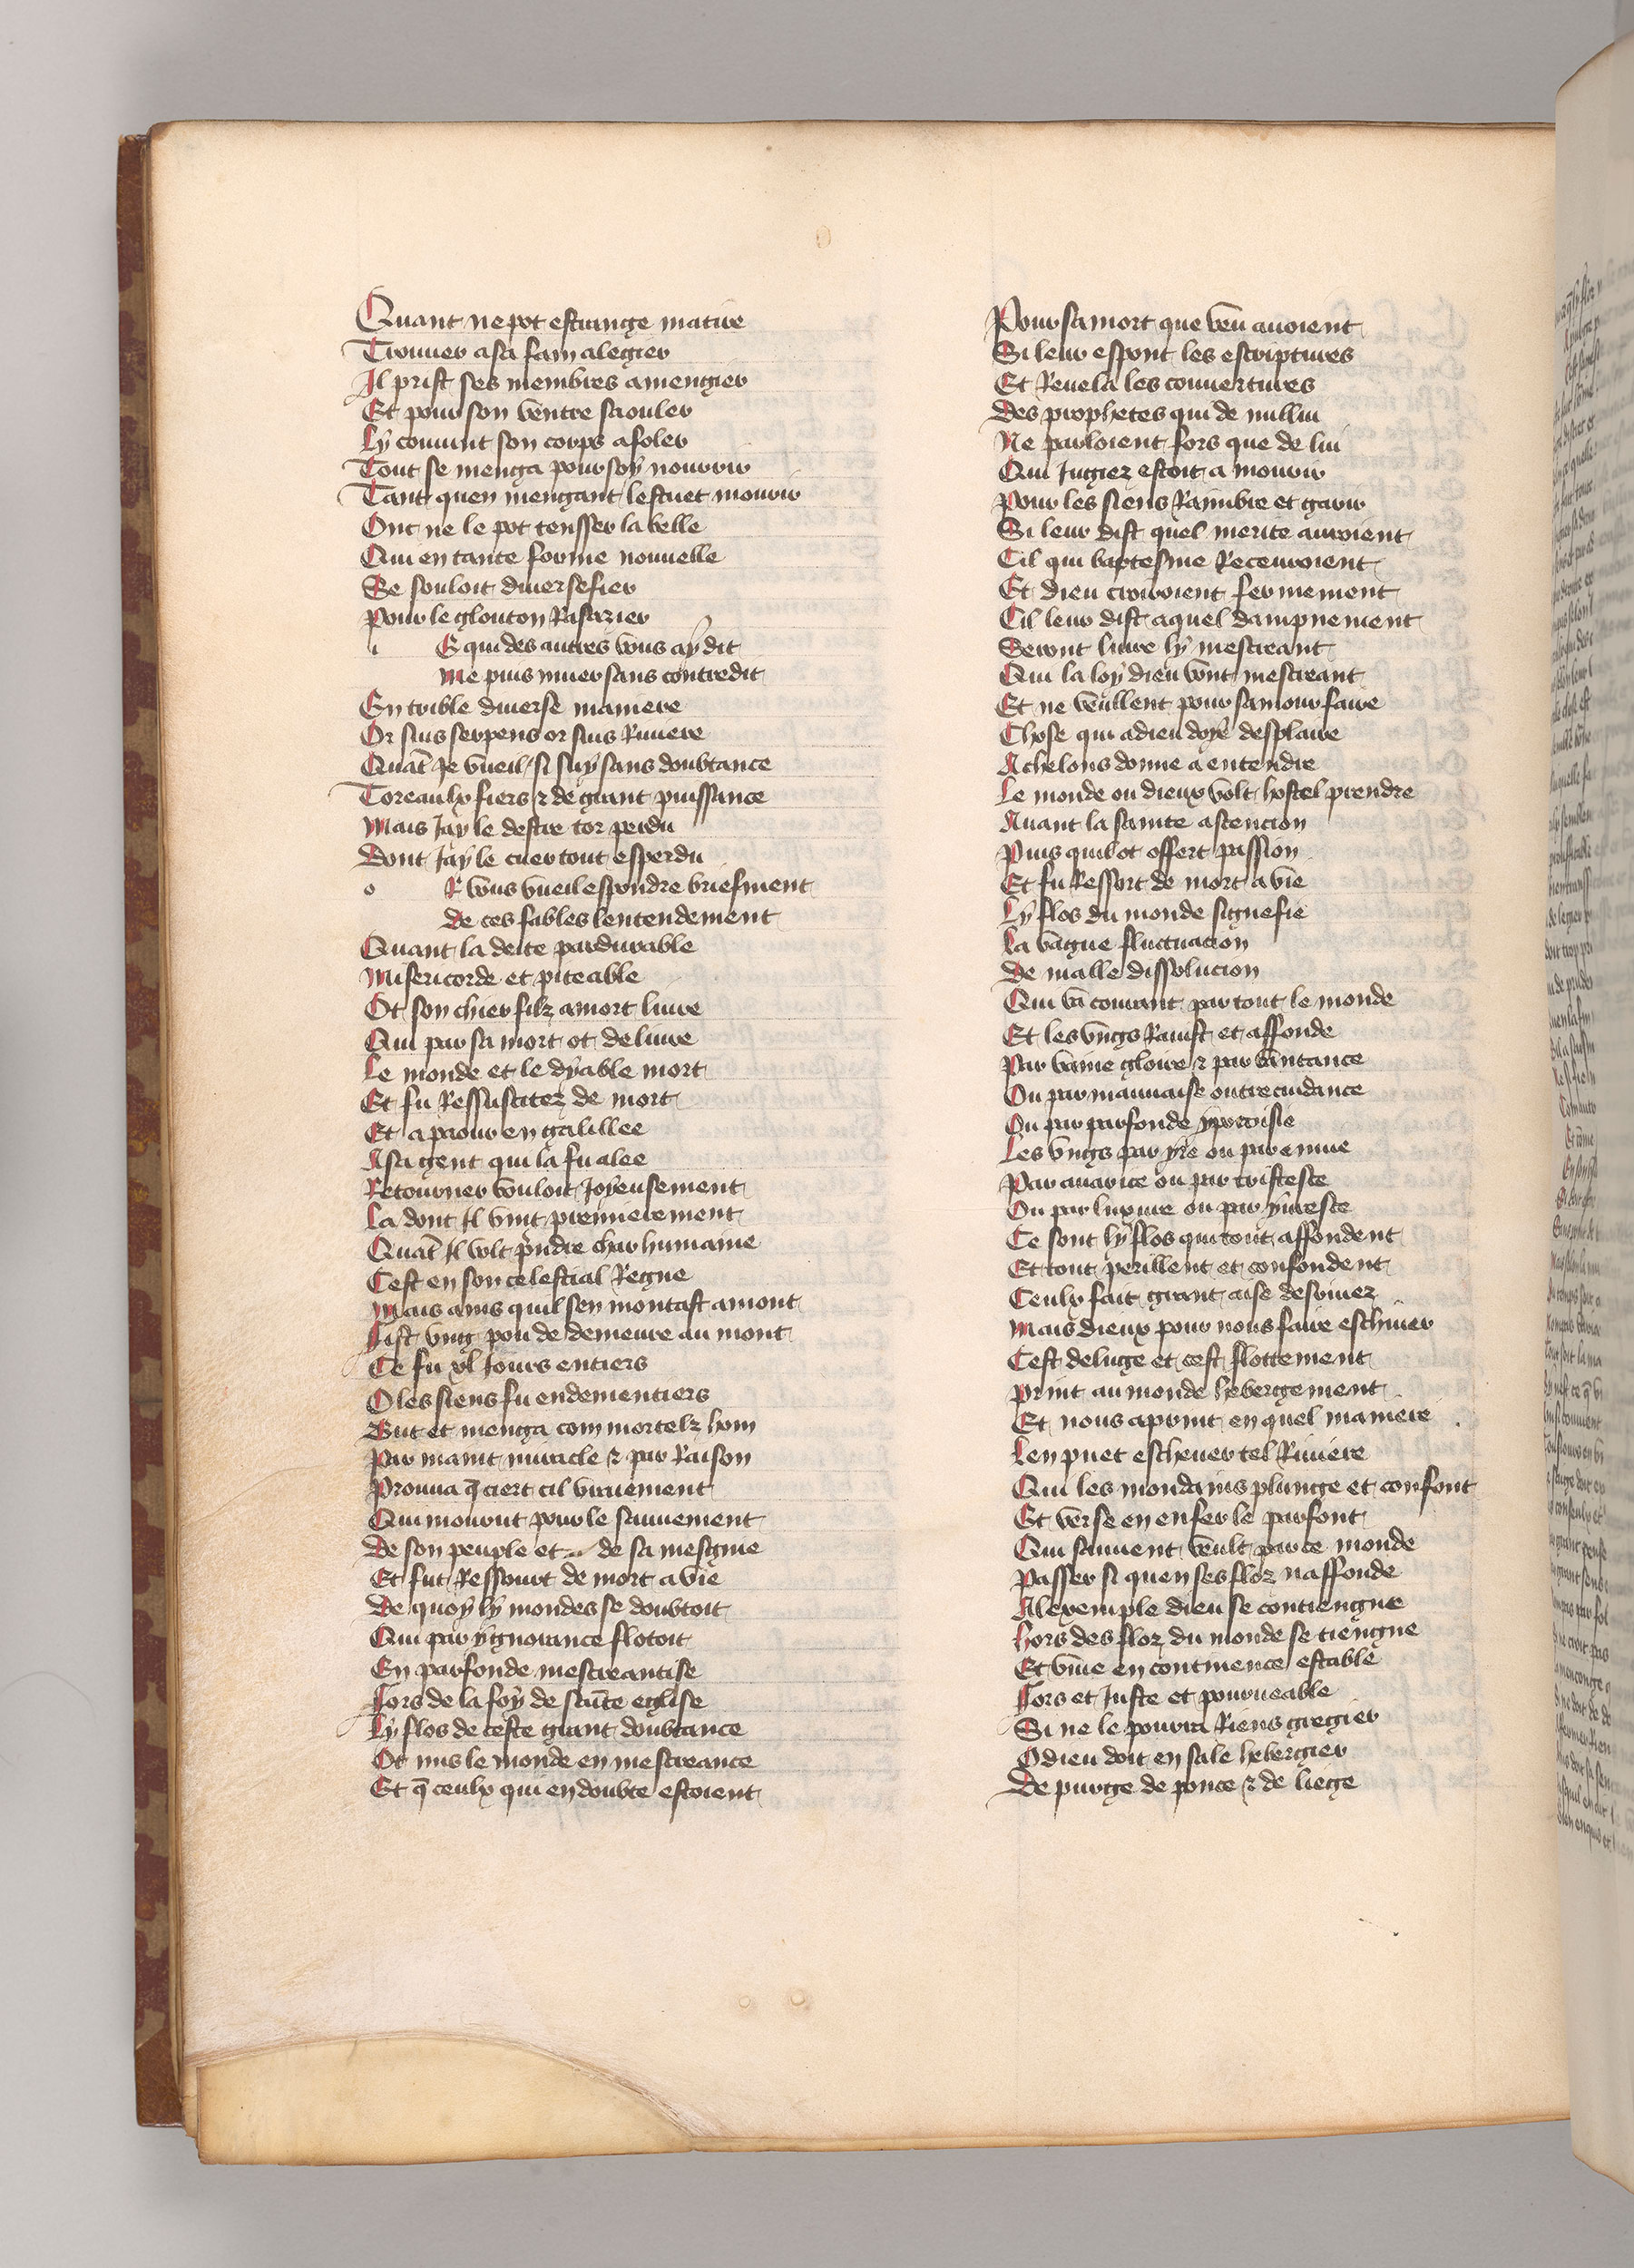 Quant ne pot estrange matire
Trouuer a sa fam alegier
Il prist ses membres a mengier
Et pour son ventre saouler
Ly conuint son corps afoler
Tout se menga pour soy nourrir
Tant quen mengant lestuet mourir
Onc ne le pot tensser la belle
Qui en tante forme nouuelle
Se souloit diuersefier
Pour le glouton Rasazier
i E qui des autres vous ay dit
Me puis muer sans contredit
En trible diuerse maniere
Or suis serpens or suis Riuiere
Quāt Je vueil si suy sans doubtance
Toreaulx fiers ⁊ de grant puissance
Mais Jay le destre cor perdu
Dont Jay le cuer tout esperdu
o R vous vueil espondre briefment
De ces fables lentendement
Quant la deite pardurable
Misericorde et piteable
Ot son chier filz a mort liure
Qui par sa mort ot deliure
Le monde et le dyable mort
Et fu Ressuscitez de mort
Et aparour en galillee
A sa gent qui la fu alee
Retourner vouloit Joyeusement
La dont Il vint premierement
Quāt Il volt pndre char humaine
Cest en son celestial Regne
Mais ains quil sen montast amont
Fist vng pou de demeure au mont
Ce fu xl Jours entiers
O les siens fu endementiers
But et menga com mortelz hom
Par maint miracle ⁊ par Raison
Prouua q̄ ciert cil vraiement
Qui mourut pour le sauuement
De son peuple et de sa mesgnie
Et fut Ressourt de mort a vie
De quoy ly mondes se doubtoit
Qui par ygnorance flotoit
En parfonde mescreantise
Fors de la foy de saīte eglise
Ly flos de ceste grant doubtance
Ot mis le monde en mescreance
Et q̄ ceulx qui en doubte estoient
Pour sa mort que veu auoient
Si leur espont les escriptures
Et Reuela les couuertures
Des prophetes qui de nullui
Ne parloient fors que de lui
Qui Jugiez estoit a mourir
Pour les siens Raimbre et garir
Si leur dist quel merite auroient
Cil qui baptesme Receuroient
Et dieu croiroient fermement
Cil leur dist a quel dampnement
Seront liure ly mescreant
Qui la loy dieu vont mescreant
Et ne veullent pour samour faire
Chose qui a dieu doye desplaire
Achelous donne a entendre
Le monde ou dieux volt hostel prendre
Auant la sainte ascencion
Puis quil ot offert passion
Et fu Ressort de mort a vie
Ly flos du monde signefie
La vague fluctuacion
De malle dissolucion
Qui va courant par tout le monde
Et les vngs Rauist et affonde
Par vaine gloire ⁊ par vantance
Ou par mauuaise outrecuidance
Ou par parfonde ypocrisie
Les vngs par yre ou par enuie
Par auarice ou par tristesce
Ou par luxure ou par yuresce
Ce sont ly flos qui tout affondent
Et tout perillent et confondent
Ceulx fait grant aise desriuez
Mais dieux pour nous faire eschiuer
Cest deluge et cest flottement
Print au monde hebergement
Et nous aprint en quel maniere
Len puet escheuer tel Riuiere
Qui les mondains plunge et confont
Et verse en enfer le parfont
Qui sauuent veult par ce monde
Passer si quen ses floz naffonde
A lexemple dieu se contiengne
Hors des floz du monde se tiengne
Et viue en continence estable
Fors et Juste et pourueable
Si ne le pourra Riens gregier
O dieu doit en sale hebergier
De purge de ponce ⁊ de liege